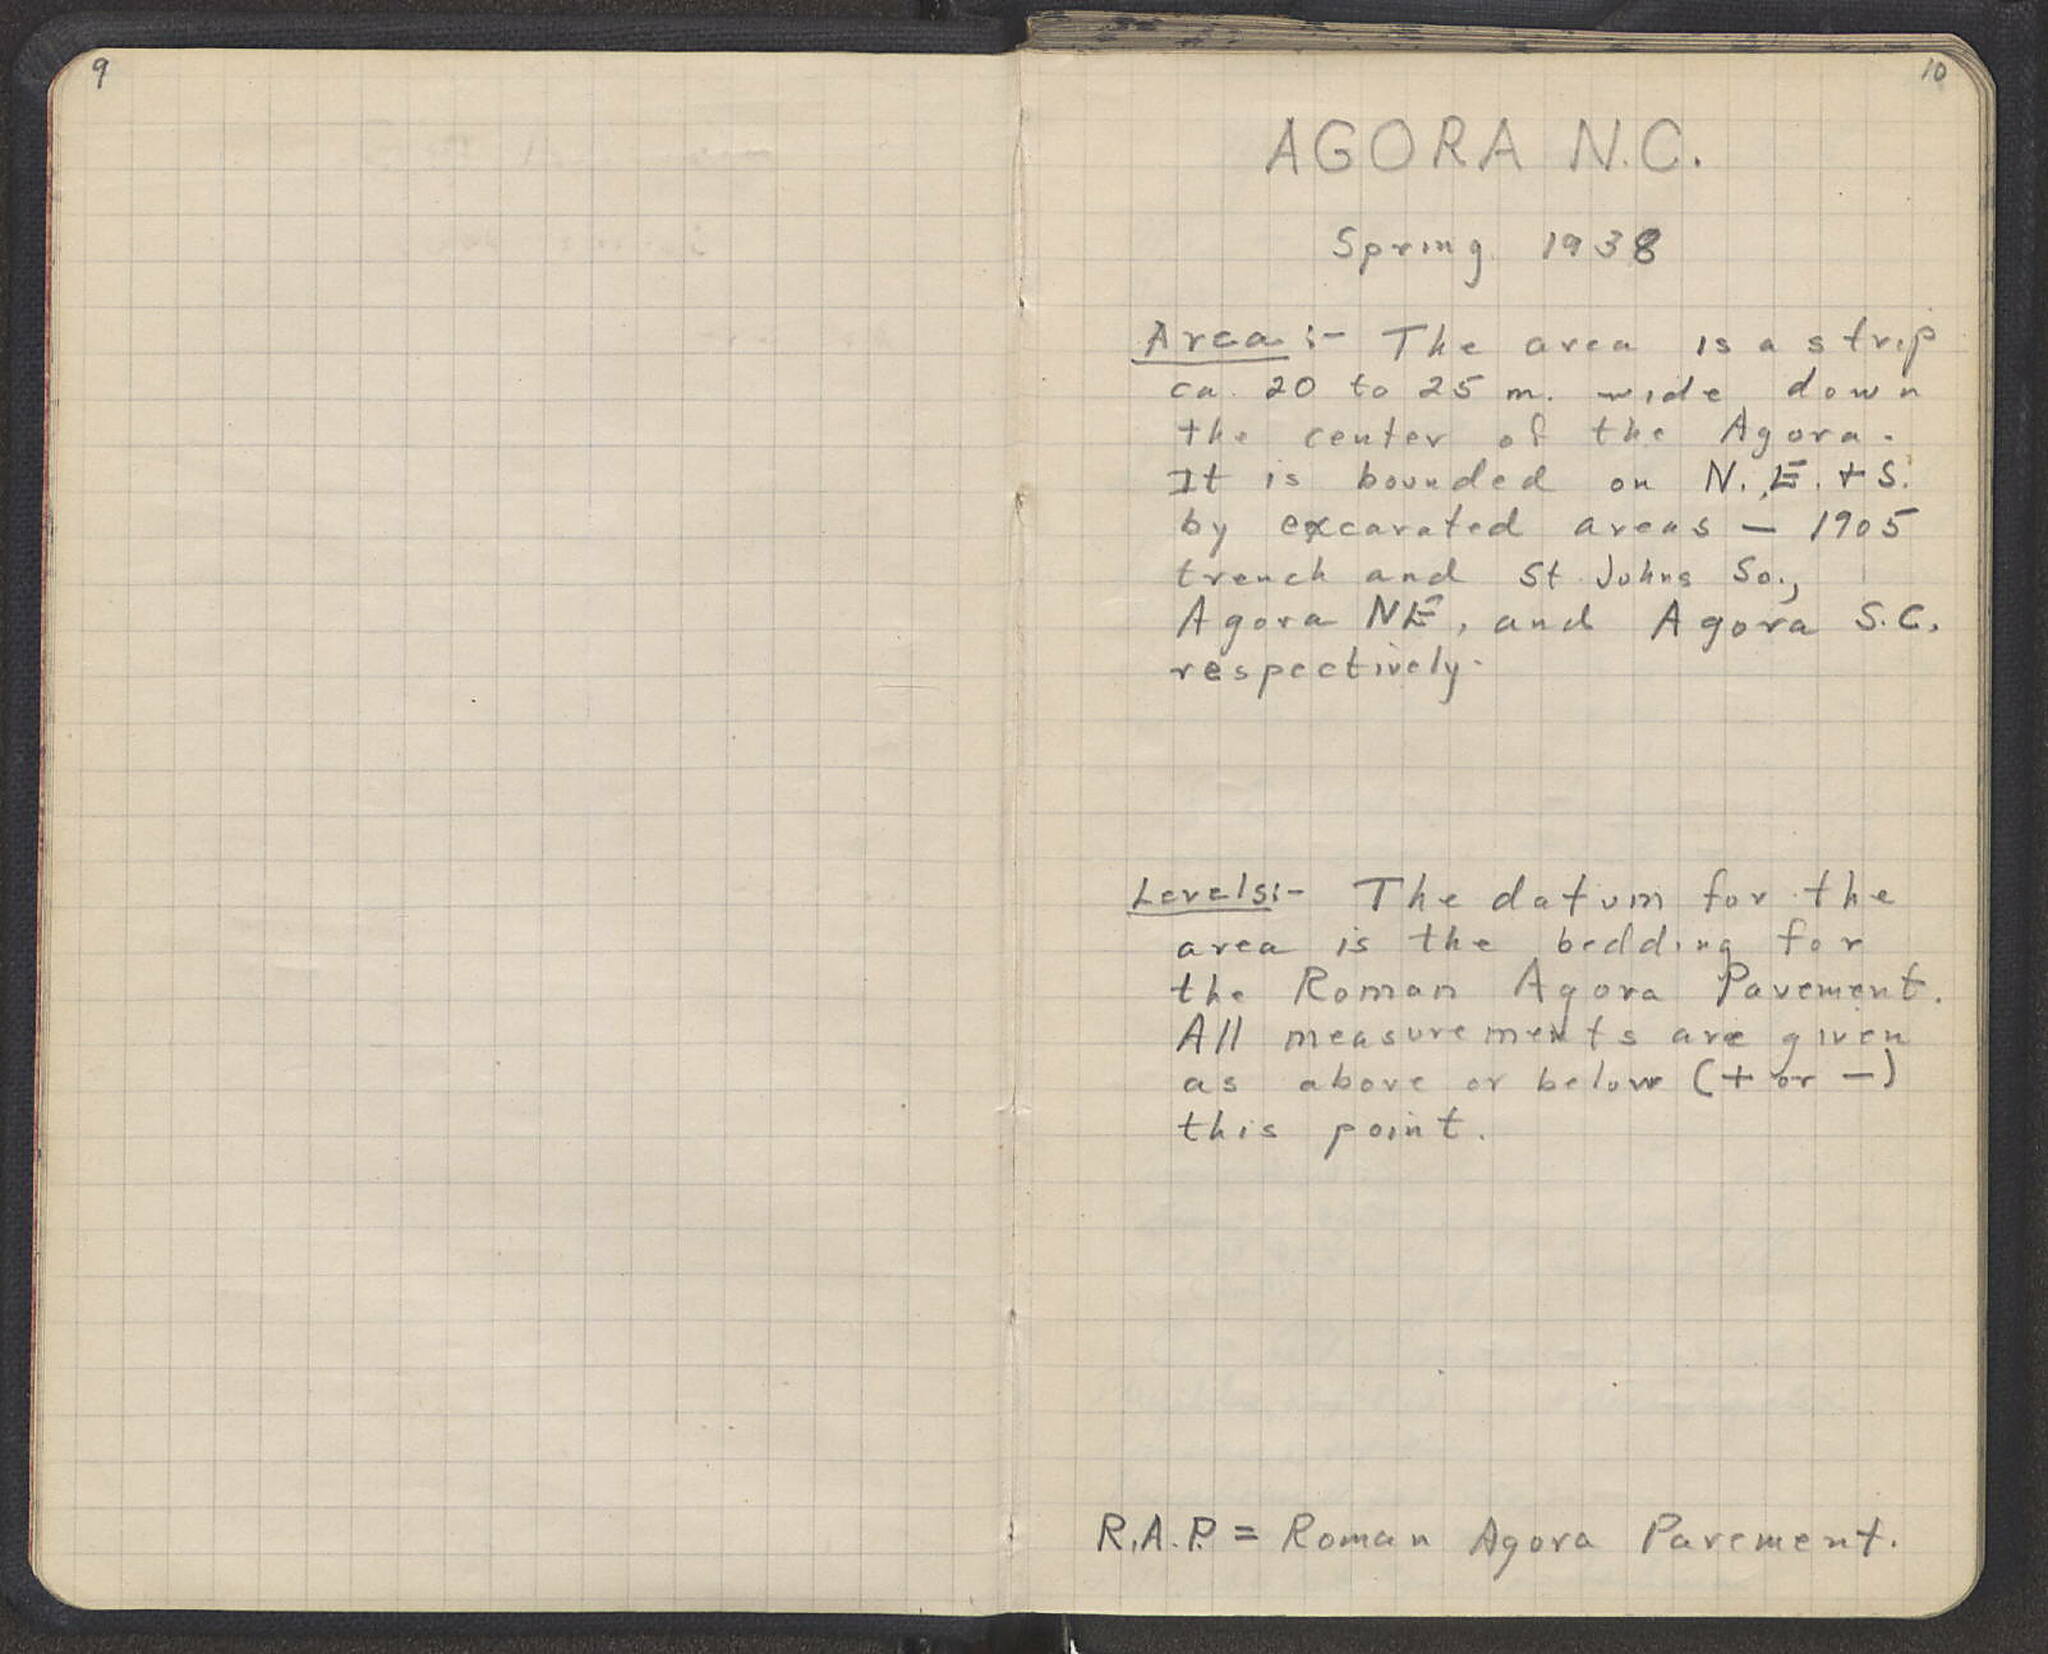 9
10
AGORA N.C.
Spring 1938
Area:- The area is a strip
ca. 20 to 25 m. wide down
the center of the Agora.
It is bounded on N., E. + S.
by excavated areas — 1905
trench and St. Johns So.,
Agora NE, and Agora S.C.,
respectively.
Levels:- The datum for the
area is the bedding for
the Roman Agora Pavement.
All measurements are given
as above or below (+ or −)
this point.
R.A.P. = Roman Agora Pavement.